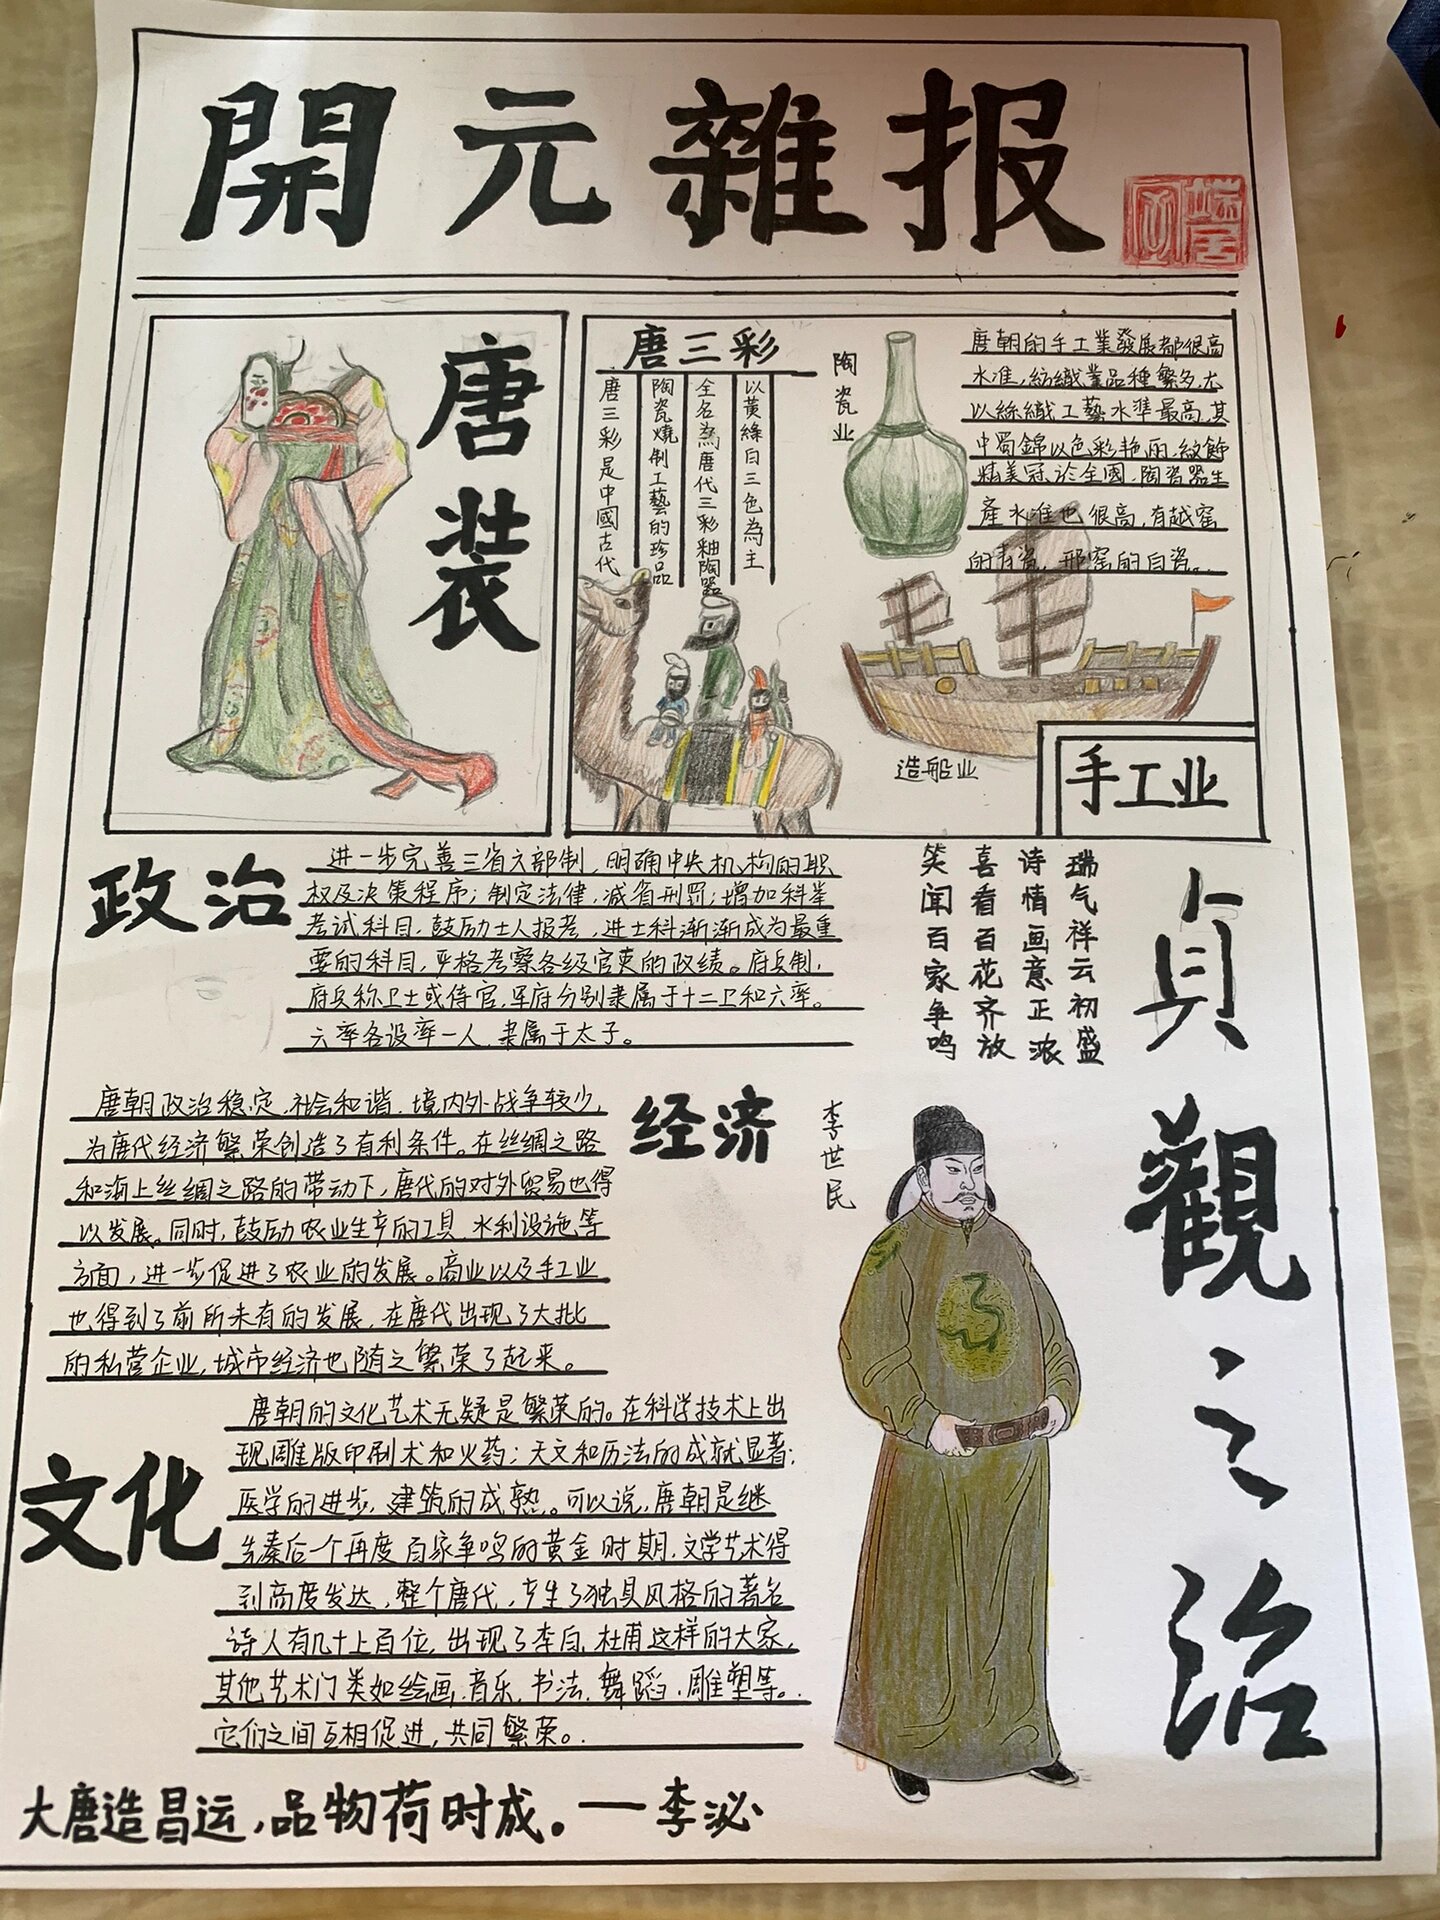 開元雜报
端居
唐装
唐三彩
唐三彩是中國古代
陶瓷燒制工藝的珍品
全名為唐代三彩釉陶器
以黃綠白三色為主
陶瓷业
唐朝的手工業發展都很高
水准,紡織業品種繁多,尤
以絲織工藝水準最高,其
中蜀錦以色彩艳丽,紋飾
精美冠於全國,陶瓷器生
產水准也很高,有越窑
的青瓷,邢窑的白瓷。
造船业
手工业
政治
进一步完善三省六部制,明确中央机构的职
权及决策程序;制定法律,减省刑罚;增加科举
考试科目,鼓励士人报考,进士科渐渐成为最重
要的科目,严格考察各级官吏的政绩。府兵制,
府兵称卫士或侍官,军府分别隶属于十二卫和六率。
六率各设率一人,隶属于太子。
瑞气祥云初盛
诗情画意正浓
喜看百花齐放
笑闻百家争鸣
貞觀之治
经济
唐朝政治稳定,社会和谐,境内外战争较少,
为唐代经济繁荣创造了有利条件。在丝绸之路
和海上丝绸之路的带动下,唐代的对外贸易也得
以发展。同时,鼓励农业生产的工具,水利设施等
方面,进一步促进了农业的发展。商业以及手工业
也得到了前所未有的发展,在唐代出现了大批
的私营企业,城市经济也随之繁荣了起来。
李世民
文化
唐朝的文化艺术无疑是繁荣的。在科学技术上出
现雕版印刷术和火药;天文和历法的成就显著;
医学的进步,建筑的成熟。可以说,唐朝是继
先秦后一个再度百家争鸣的黄金时期,文学艺术得
到高度发达,整个唐代,产生了独具风格的著名
诗人有几十上百位,出现了李白,杜甫这样的大家,
其他艺术门类如绘画,音乐,书法,舞蹈,雕塑等。
它们之间互相促进,共同繁荣。
大唐造昌运,品物荷时成。——李泌